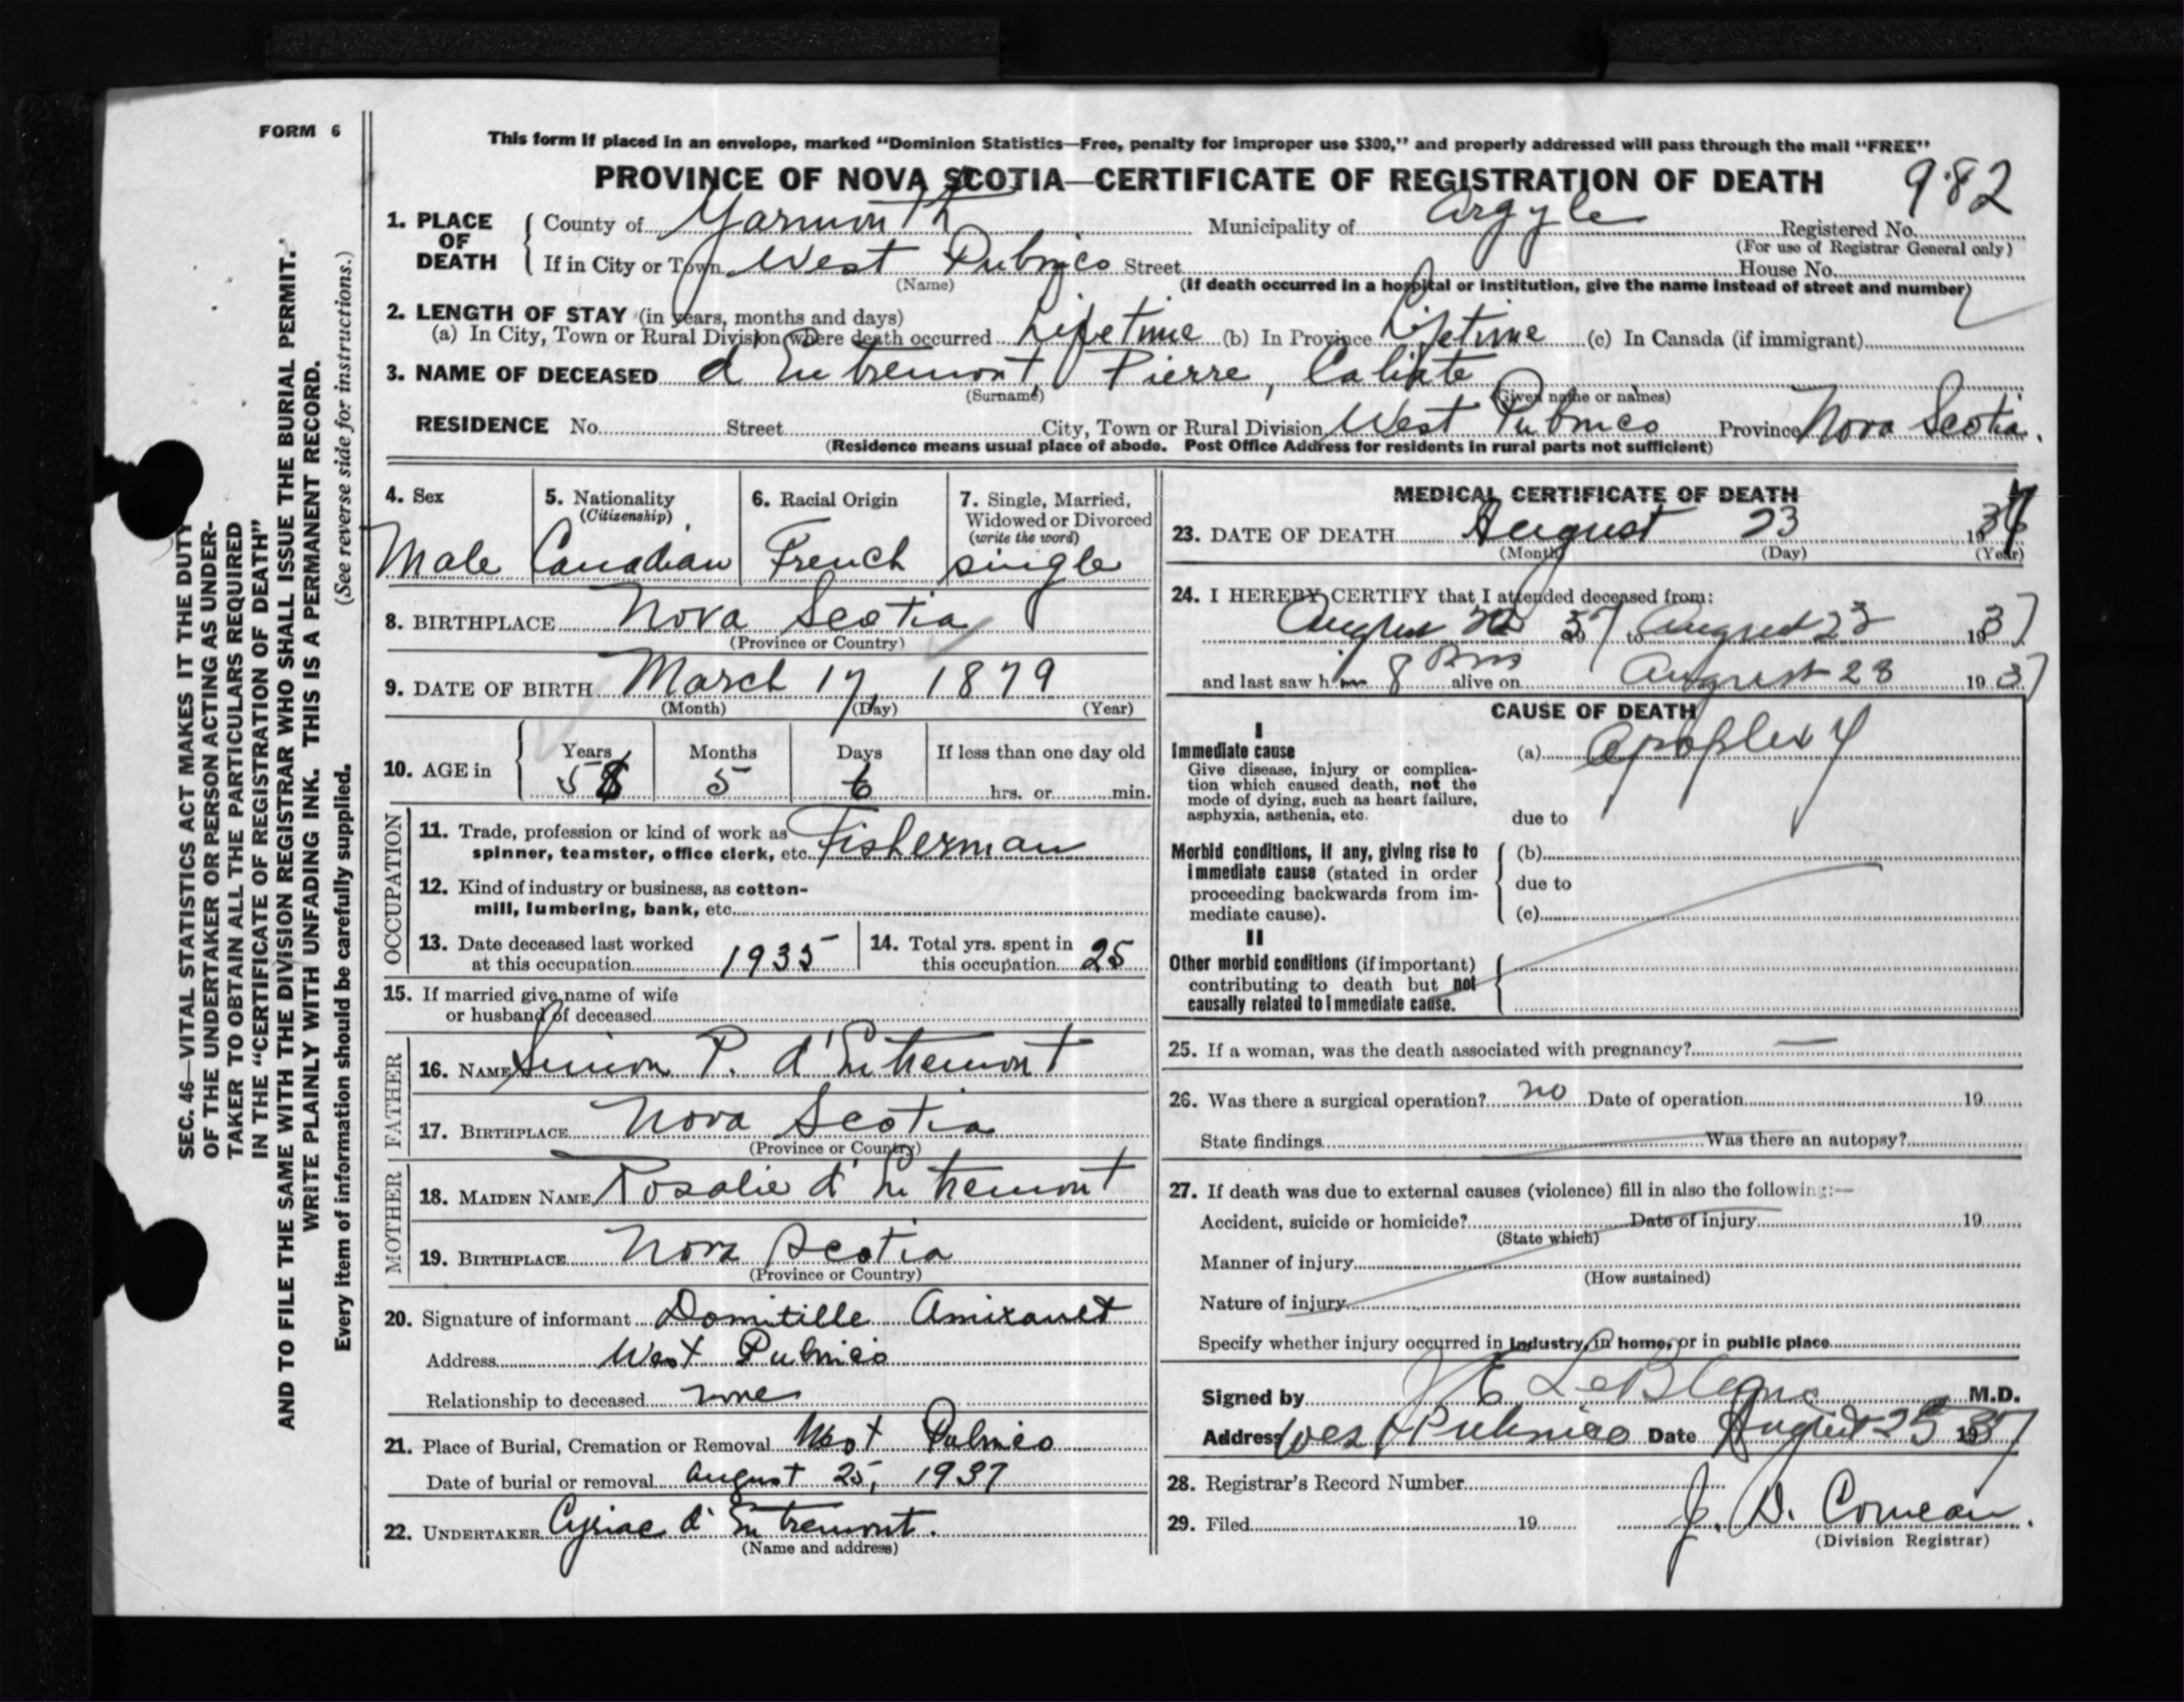 FORM 6
This form if placed in an envelope, marked “Dominion Statistics—Free, penalty for improper use $300,” and properly addressed will pass through the mail “FREE”
PROVINCE OF NOVA SCOTIA—CERTIFICATE OF REGISTRATION OF DEATH 982
1. PLACE OF DEATH County of Yarmouth Municipality of Argyle Registered No.
(For use of Registrar General only)
If in City or Town West Pubnico Street House No.
(Name) (If death occurred in a hospital or institution, give the name instead of street and number)
2. LENGTH OF STAY (in years, months and days)
(a) In City, Town or Rural Division where death occurred Lifetime (b) In Province Lifetime (c) In Canada (if immigrant)
3. NAME OF DECEASED d'Entremont, Pierre, Calixte
(Surname) (Given name or names)
RESIDENCE No. Street City, Town or Rural Division West Pubnico Province Nova Scotia.
(Residence means usual place of abode. Post Office Address for residents in rural parts not sufficient)
SEC. 46—VITAL STATISTICS ACT MAKES IT THE DUTY
OF THE UNDERTAKER OR PERSON ACTING AS UNDER-
TAKER TO OBTAIN ALL THE PARTICULARS REQUIRED
IN THE “CERTIFICATE OF REGISTRATION OF DEATH”
AND TO FILE THE SAME WITH THE DIVISION REGISTRAR WHO SHALL ISSUE THE BURIAL PERMIT.
WRITE PLAINLY WITH UNFADING INK. THIS IS A PERMANENT RECORD.
Every item of information should be carefully supplied. (See reverse side for instructions.)
4. Sex
Male
5. Nationality
(Citizenship)
Canadian
6. Racial Origin
French
7. Single, Married,
Widowed or Divorced
(write the word)
single
8. BIRTHPLACE Nova Scotia
(Province or Country)
9. DATE OF BIRTH March 17, 1879
(Month) (Day) (Year)
10. AGE in Years Months Days If less than one day old
58 5 6 hrs. or min.
OCCUPATION
11. Trade, profession or kind of work as
spinner, teamster, office clerk, etc. Fisherman
12. Kind of industry or business, as cotton-
mill, lumbering, bank, etc.
13. Date deceased last worked
at this occupation 1935
14. Total yrs. spent in
this occupation 25
15. If married give name of wife
or husband of deceased
FATHER
16. NAME Simon P. d'Entremont
17. BIRTHPLACE Nova Scotia
(Province or Country)
MOTHER
18. MAIDEN NAME Rosalie d'Entremont
19. BIRTHPLACE Nova Scotia
(Province or Country)
20. Signature of informant Domitille Amirault
Address West Pubnico
Relationship to deceased none
21. Place of Burial, Cremation or Removal West Pubnico
Date of burial or removal August 25, 1937
22. UNDERTAKER Cyriac d'Entremont.
(Name and address)
MEDICAL CERTIFICATE OF DEATH
23. DATE OF DEATH August 23 1937
(Month) (Day) (Year)
24. I HEREBY CERTIFY that I attended deceased from:
August 37 to August 23 1937
and last saw him 8 Pm alive on August 23 1937
CAUSE OF DEATH
I
Immediate cause
Give disease, injury or complica-
tion which caused death, not the
mode of dying, such as heart failure,
asphyxia, asthenia, etc.
(a) Apoplexy
due to
Morbid conditions, if any, giving rise to
immediate cause (stated in order
proceeding backwards from im-
mediate cause).
(b)
due to
(c)
II
Other morbid conditions (if important)
contributing to death but not
causally related to immediate cause.
25. If a woman, was the death associated with pregnancy? —
26. Was there a surgical operation? no Date of operation 19
State findings Was there an autopsy?
27. If death was due to external causes (violence) fill in also the following:—
Accident, suicide or homicide? Date of injury 19
(State which)
Manner of injury
(How sustained)
Nature of injury
Specify whether injury occurred in industry, in home, or in public place
Signed by J E LeBlanc M.D.
Address West Pubnico Date August 25 1937
28. Registrar's Record Number
29. Filed 19 J. D. Comeau.
(Division Registrar)